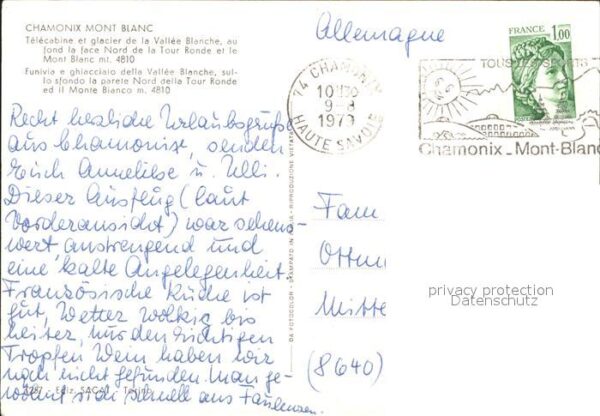 CHAMONIX MONT BLANC
Télécabine et glacier de la Vallée Blanche, au
fond la face Nord de la Tour Ronde et le
Mont Blanc mt. 4810
Funivia e ghiacciaio della Vallée Blanche, sul-
lo sfondo la parete Nord della Tour Ronde
ed il Monte Bianco m. 4810
Recht herzliche Urlaubsgrüße
aus Chamonix, senden
Euch Anneliese u. Ulli.
Dieser Ausflug (laut
Vorderansicht) war sehens-
wert, anstrengend und
eine kalte Angelegenheit
Französische Küche ist
gut, Wetter wolkig bis
heiter, nur den richtigen
Tropfen Wein haben wir
noch nicht gefunden. Man ge-
wöhnt sich schnell ans Faulenzen.
Ediz. SACAT - Torino
DA FOTOCOLOR - STAMPATO IN ITALIA - RIPRODUZIONE VIETATA
Allemagne
74 CHAMONIX
10H30
9-8
1979
HAUTE SAVOIE
FRANCE
1,00
TOUS LES SPORTS
Chamonix_Mont-Blanc
Fam
Ottm
Mitte
(8640)
privacy protection
Datenschutz